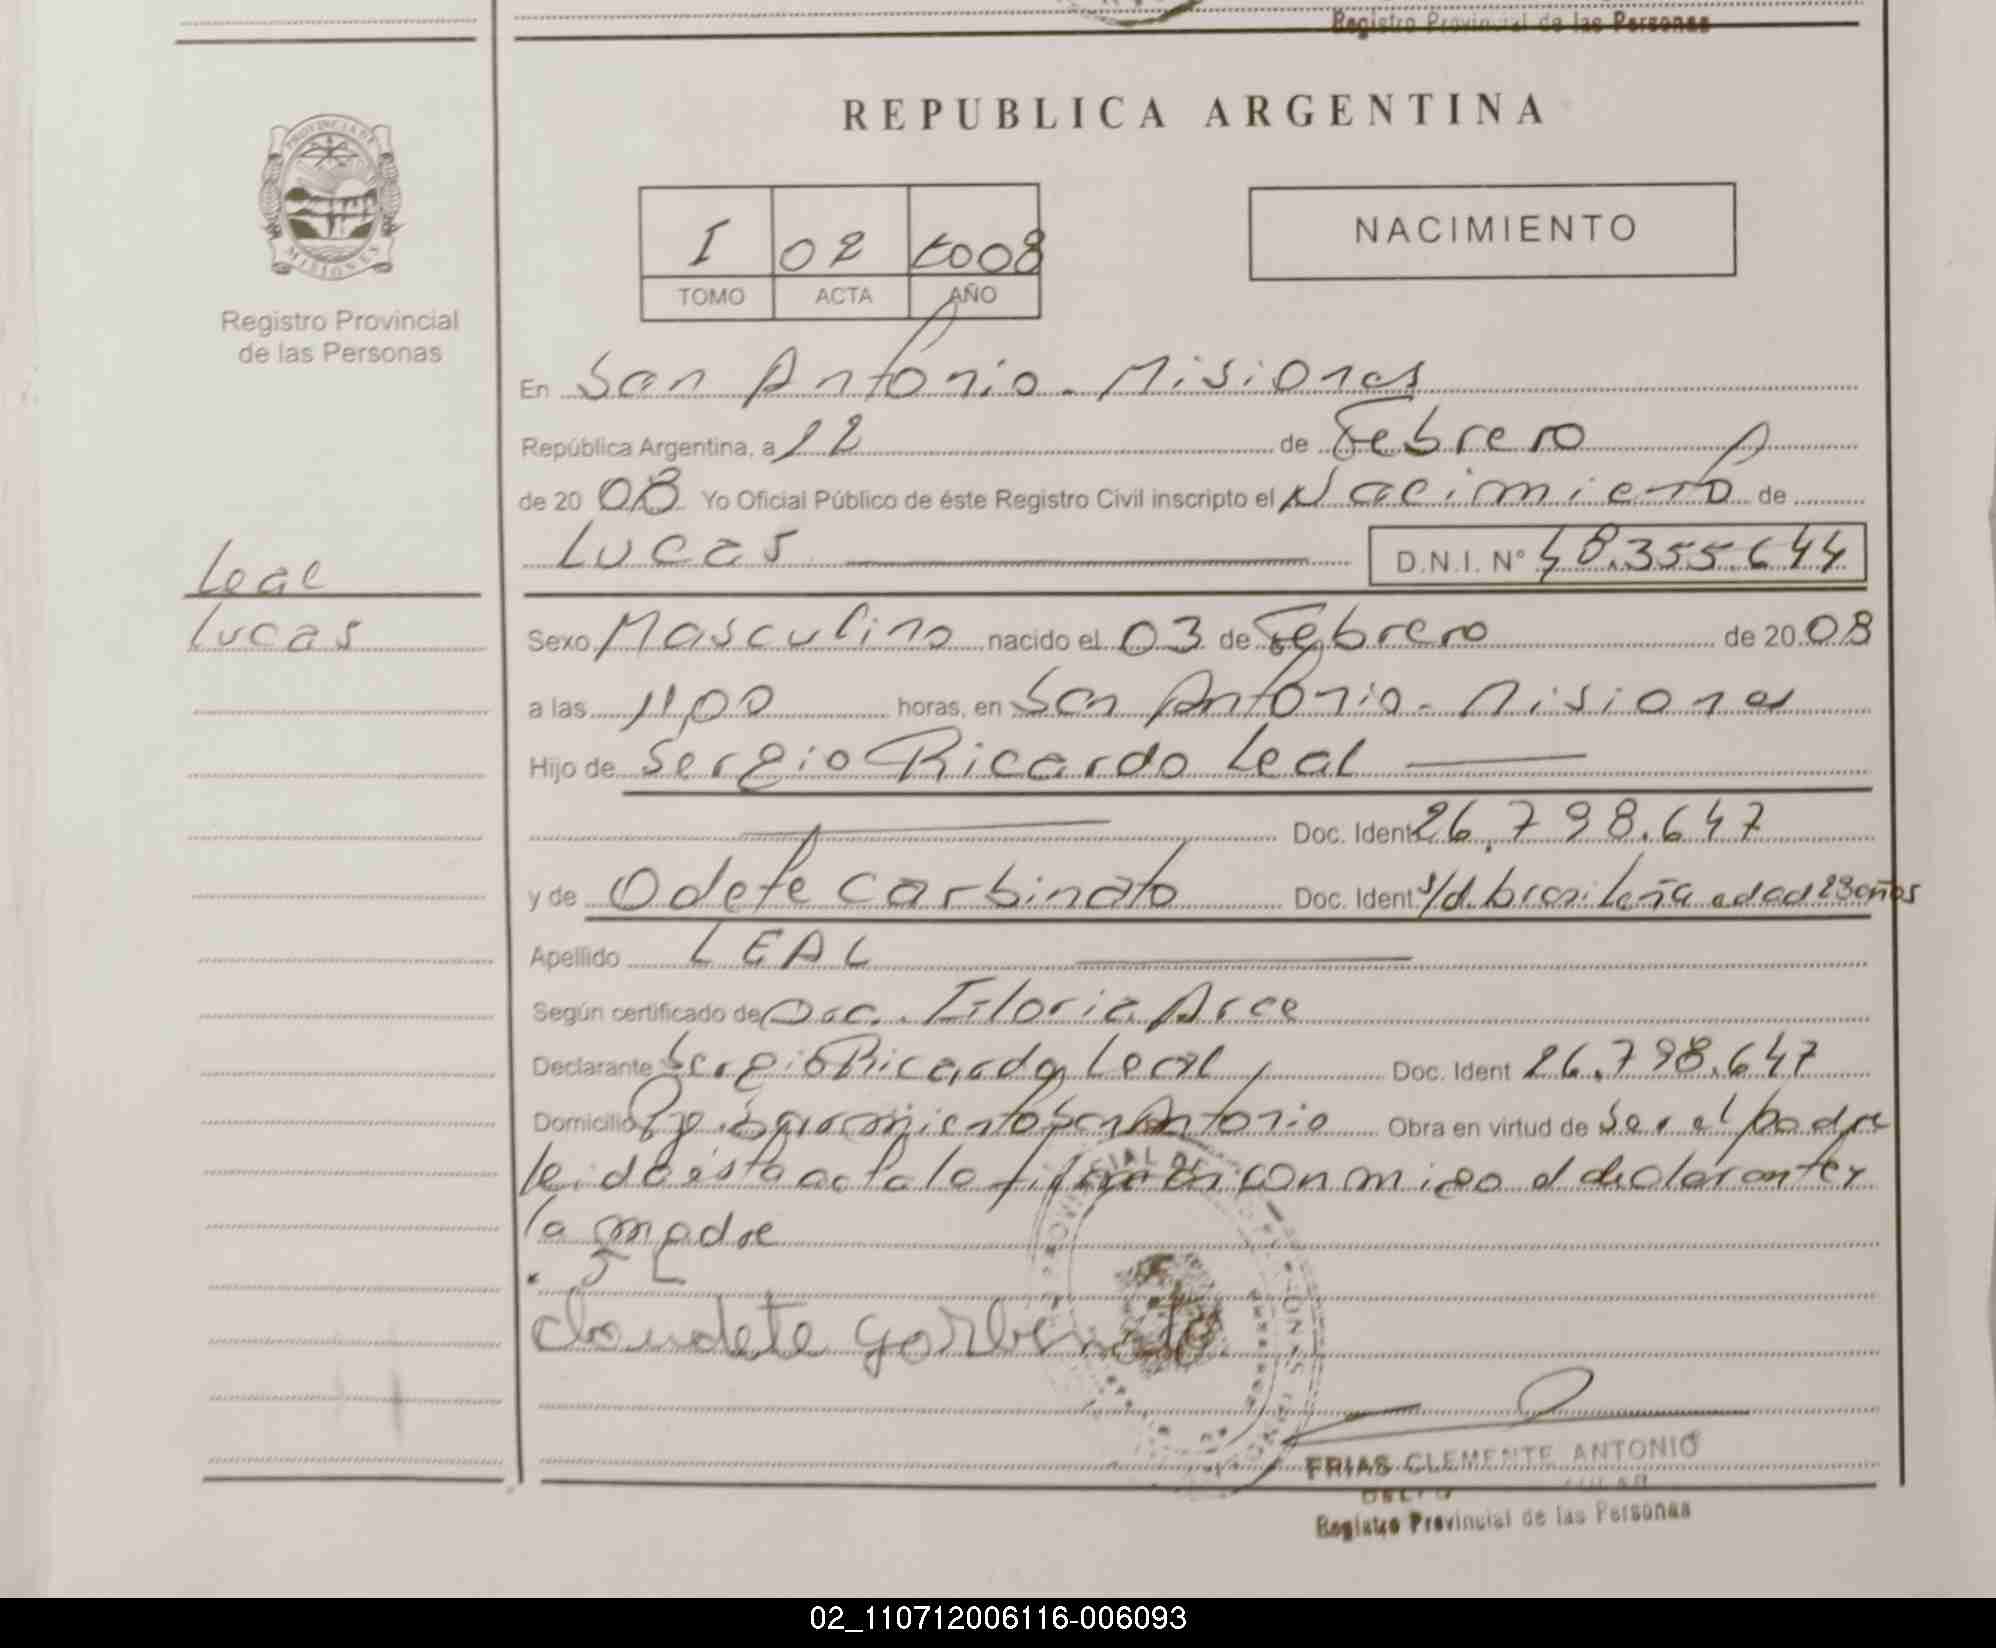 Registro Provincial de las Personas
REPUBLICA ARGENTINA
PROVINCIA DE
MISIONES
Registro Provincial
de las Personas
I 02 2008
TOMO ACTA AÑO
NACIMIENTO
En San Antonio - Misiones
República Argentina, a 12 de Febrero
de 20 08 Yo Oficial Público de éste Registro Civil inscripto el Nacimiento de
Lucas D.N.I. Nº 48.355.644
Leal
Lucas
Sexo Masculino nacido el 03 de Febrero de 20 08
a las 11,00 horas, en San Antonio - Misiones
Hijo de Sergio Ricardo Leal
Doc. Ident 26.798.647
y de Odete Carbinato Doc. Ident s/d. brasileña edad 23 años
Apellido LEAL
Según certificado de Doc. Gloria Arce
Declarante Sergio Ricardo Leal Doc. Ident 26.798.647
Domicilio San Antonio Obra en virtud de ser el padre
leido esta acta la firman conmigo el declarante y
la madre
S L
FRIAS CLEMENTE ANTONIO
Registro Provincial de las Personas
02_110712006116-006093